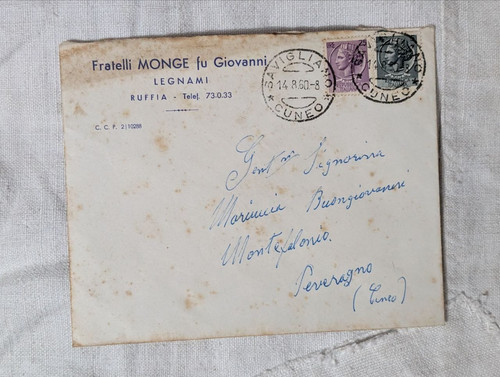 Fratelli MONGE fu Giovanni
LEGNAMI
RUFFIA - Telef. 73.0.33
C. C. F. 2110286
SAVIGLIANO
14.8.60.-8
* CUNEO *
SAVIGLIANO
14
* CUNEO
Gent.ma Signorina
Mariuccia Buongiovanni
Montefalonio.
Peveragno
(Cuneo)